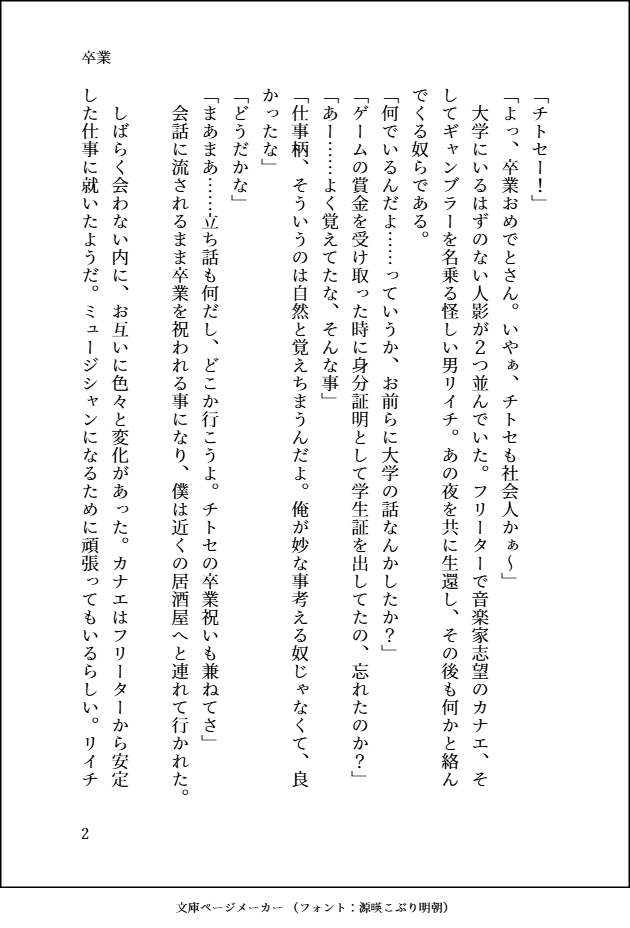 卒業
「チトセー！」
「よっ、卒業おめでとさん。いやぁ、チトセも社会人かぁ〜」
大学にいるはずのない人影が２つ並んでいた。フリーターで音楽家志望のカナエ、そ
してギャンブラーを名乗る怪しい男リイチ。あの夜を共に生還し、その後も何かと絡ん
でくる奴らである。
「何でいるんだよ……っていうか、お前らに大学の話なんかしたか？」
「ゲームの賞金を受け取った時に身分証明として学生証を出してたの、忘れたのか？」
「あー……よく覚えてたな、そんな事」
「仕事柄、そういうのは自然と覚えちまうんだよ。俺が妙な事考える奴じゃなくて、良
かったな」
「どうだかな」
「まあまあ……立ち話も何だし、どこか行こうよ。チトセの卒業祝いも兼ねてさ」
会話に流されるまま卒業を祝われる事になり、僕は近くの居酒屋へと連れて行かれた。
しばらく会わない内に、お互いに色々と変化があった。カナエはフリーターから安定
した仕事に就いたようだ。ミュージシャンになるために頑張ってもいるらしい。リイチ
2
文庫ページメーカー（フォント：源暎こぶり明朝）